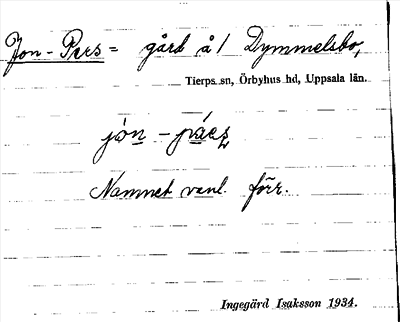 Jon-Pers = gård å/ Dymmelsbo,
Tierps sn, Örbyhus hd, Uppsala län.
jòn - pá̀es̨
Namnet vanl. förr.
Ingegärd Isaksson 1934.